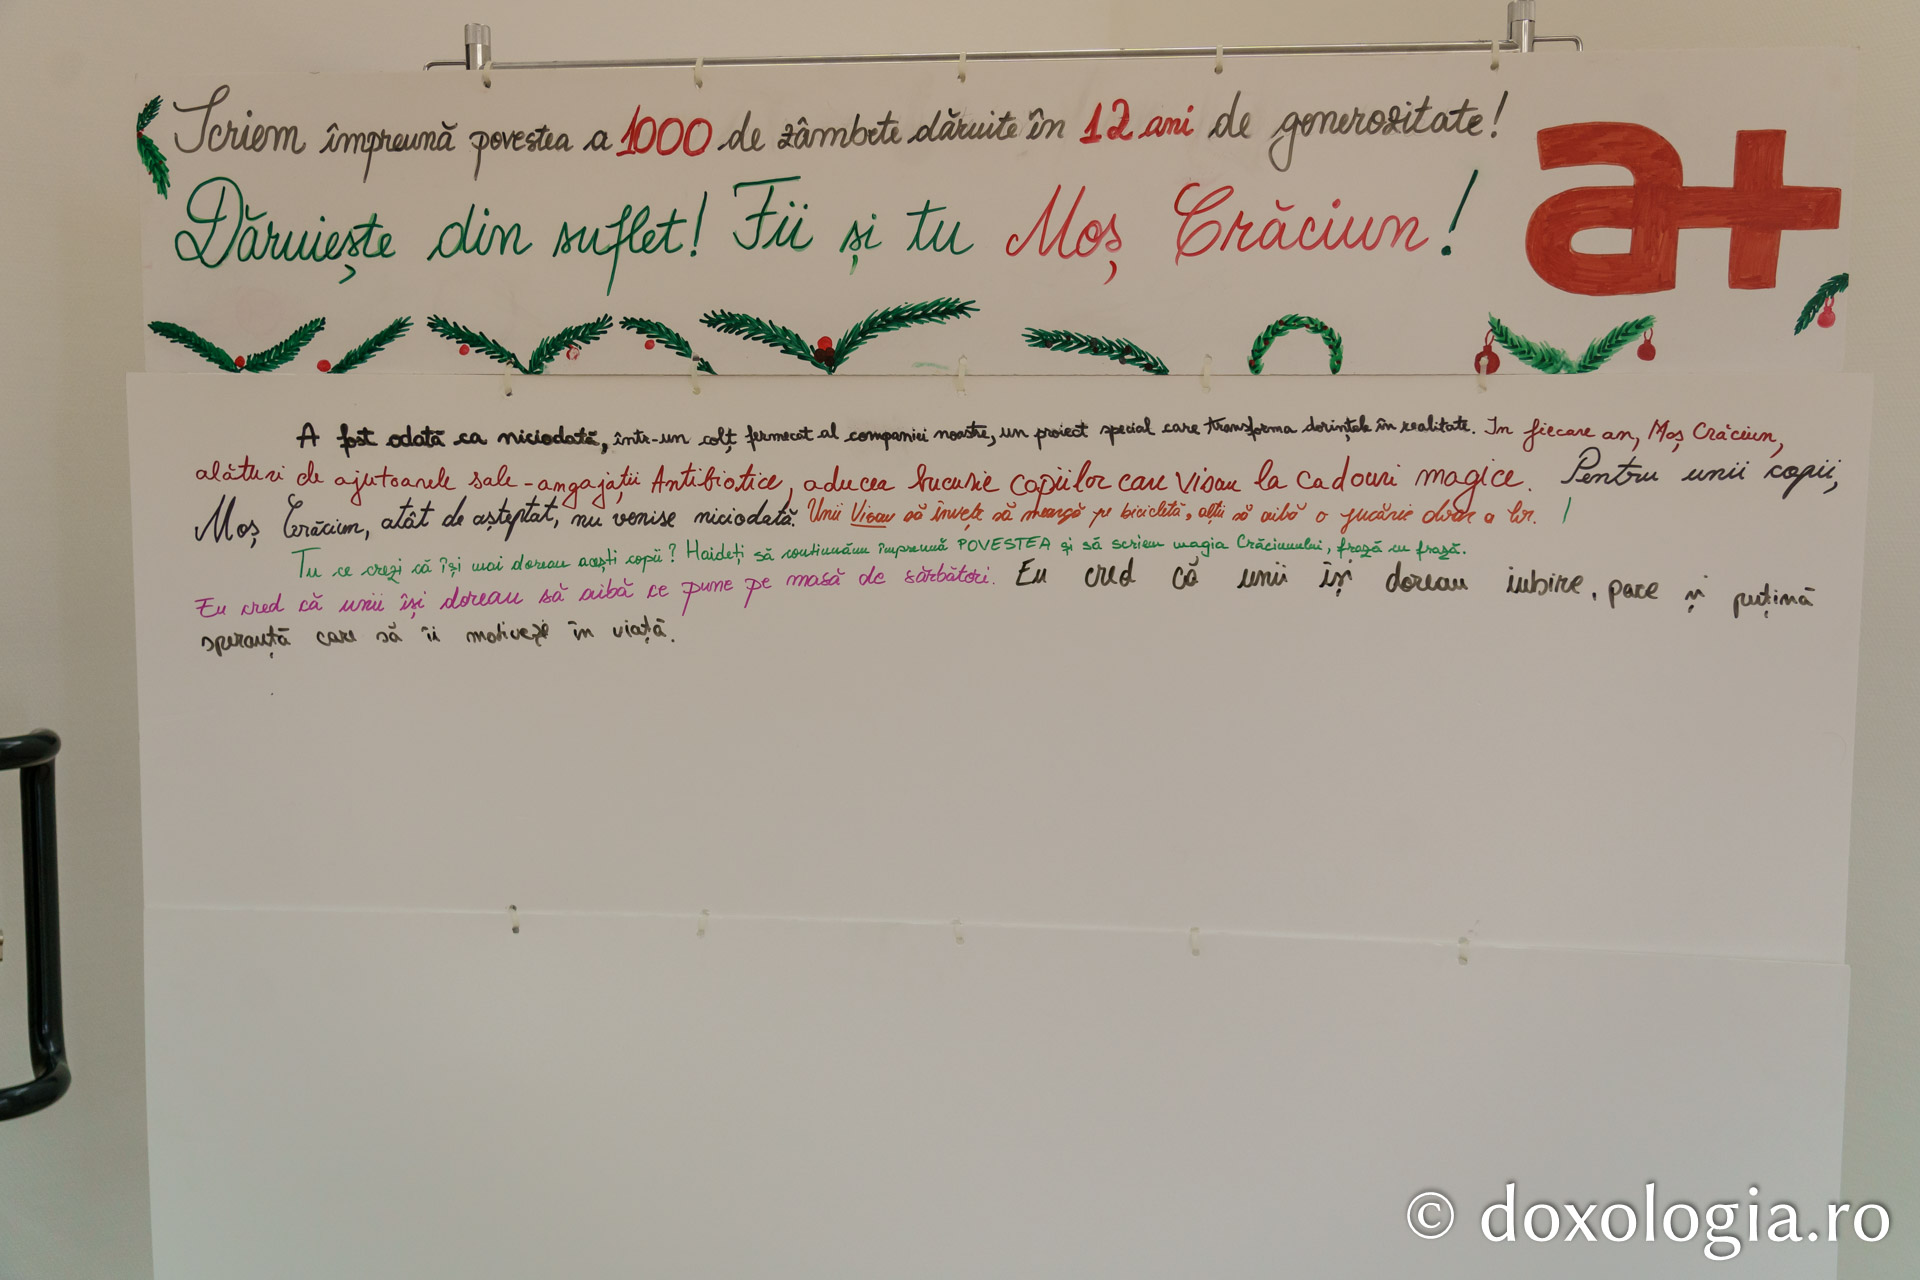 Scriem împreună povestea a 1000 de zâmbete dăruite în 12 ani de generozitate!
Dăruiește din suflet! Fii și tu Moș Crăciun!
a+
A fost odată ca niciodată, într-un colț fermecat al companiei noastre, un proiect special care transforma dorințele în realitate. In fiecare an, Moș Crăciun,
alături de ajutoarele sale - angajații Antibiotice, aducea bucurie copiilor care visau la cadouri magice. Pentru unii copii,
Moș Crăciun, atât de așteptat, nu venise niciodată. Unii Visau să învețe să meargă pe bicicletă, alții să aibă o jucărie doar a lor.
Tu ce crezi că își mai doreau acești copii? Haideți să continuăm împreună POVESTEA și să scriem magia Crăciunului, frază cu frază.
Eu cred că unii își doreau să aibă ce pune pe masă de sărbători. Eu cred că unii își doreau iubire, pace și puțină
speranță care să îi motiveze în viață.
© doxologia.ro